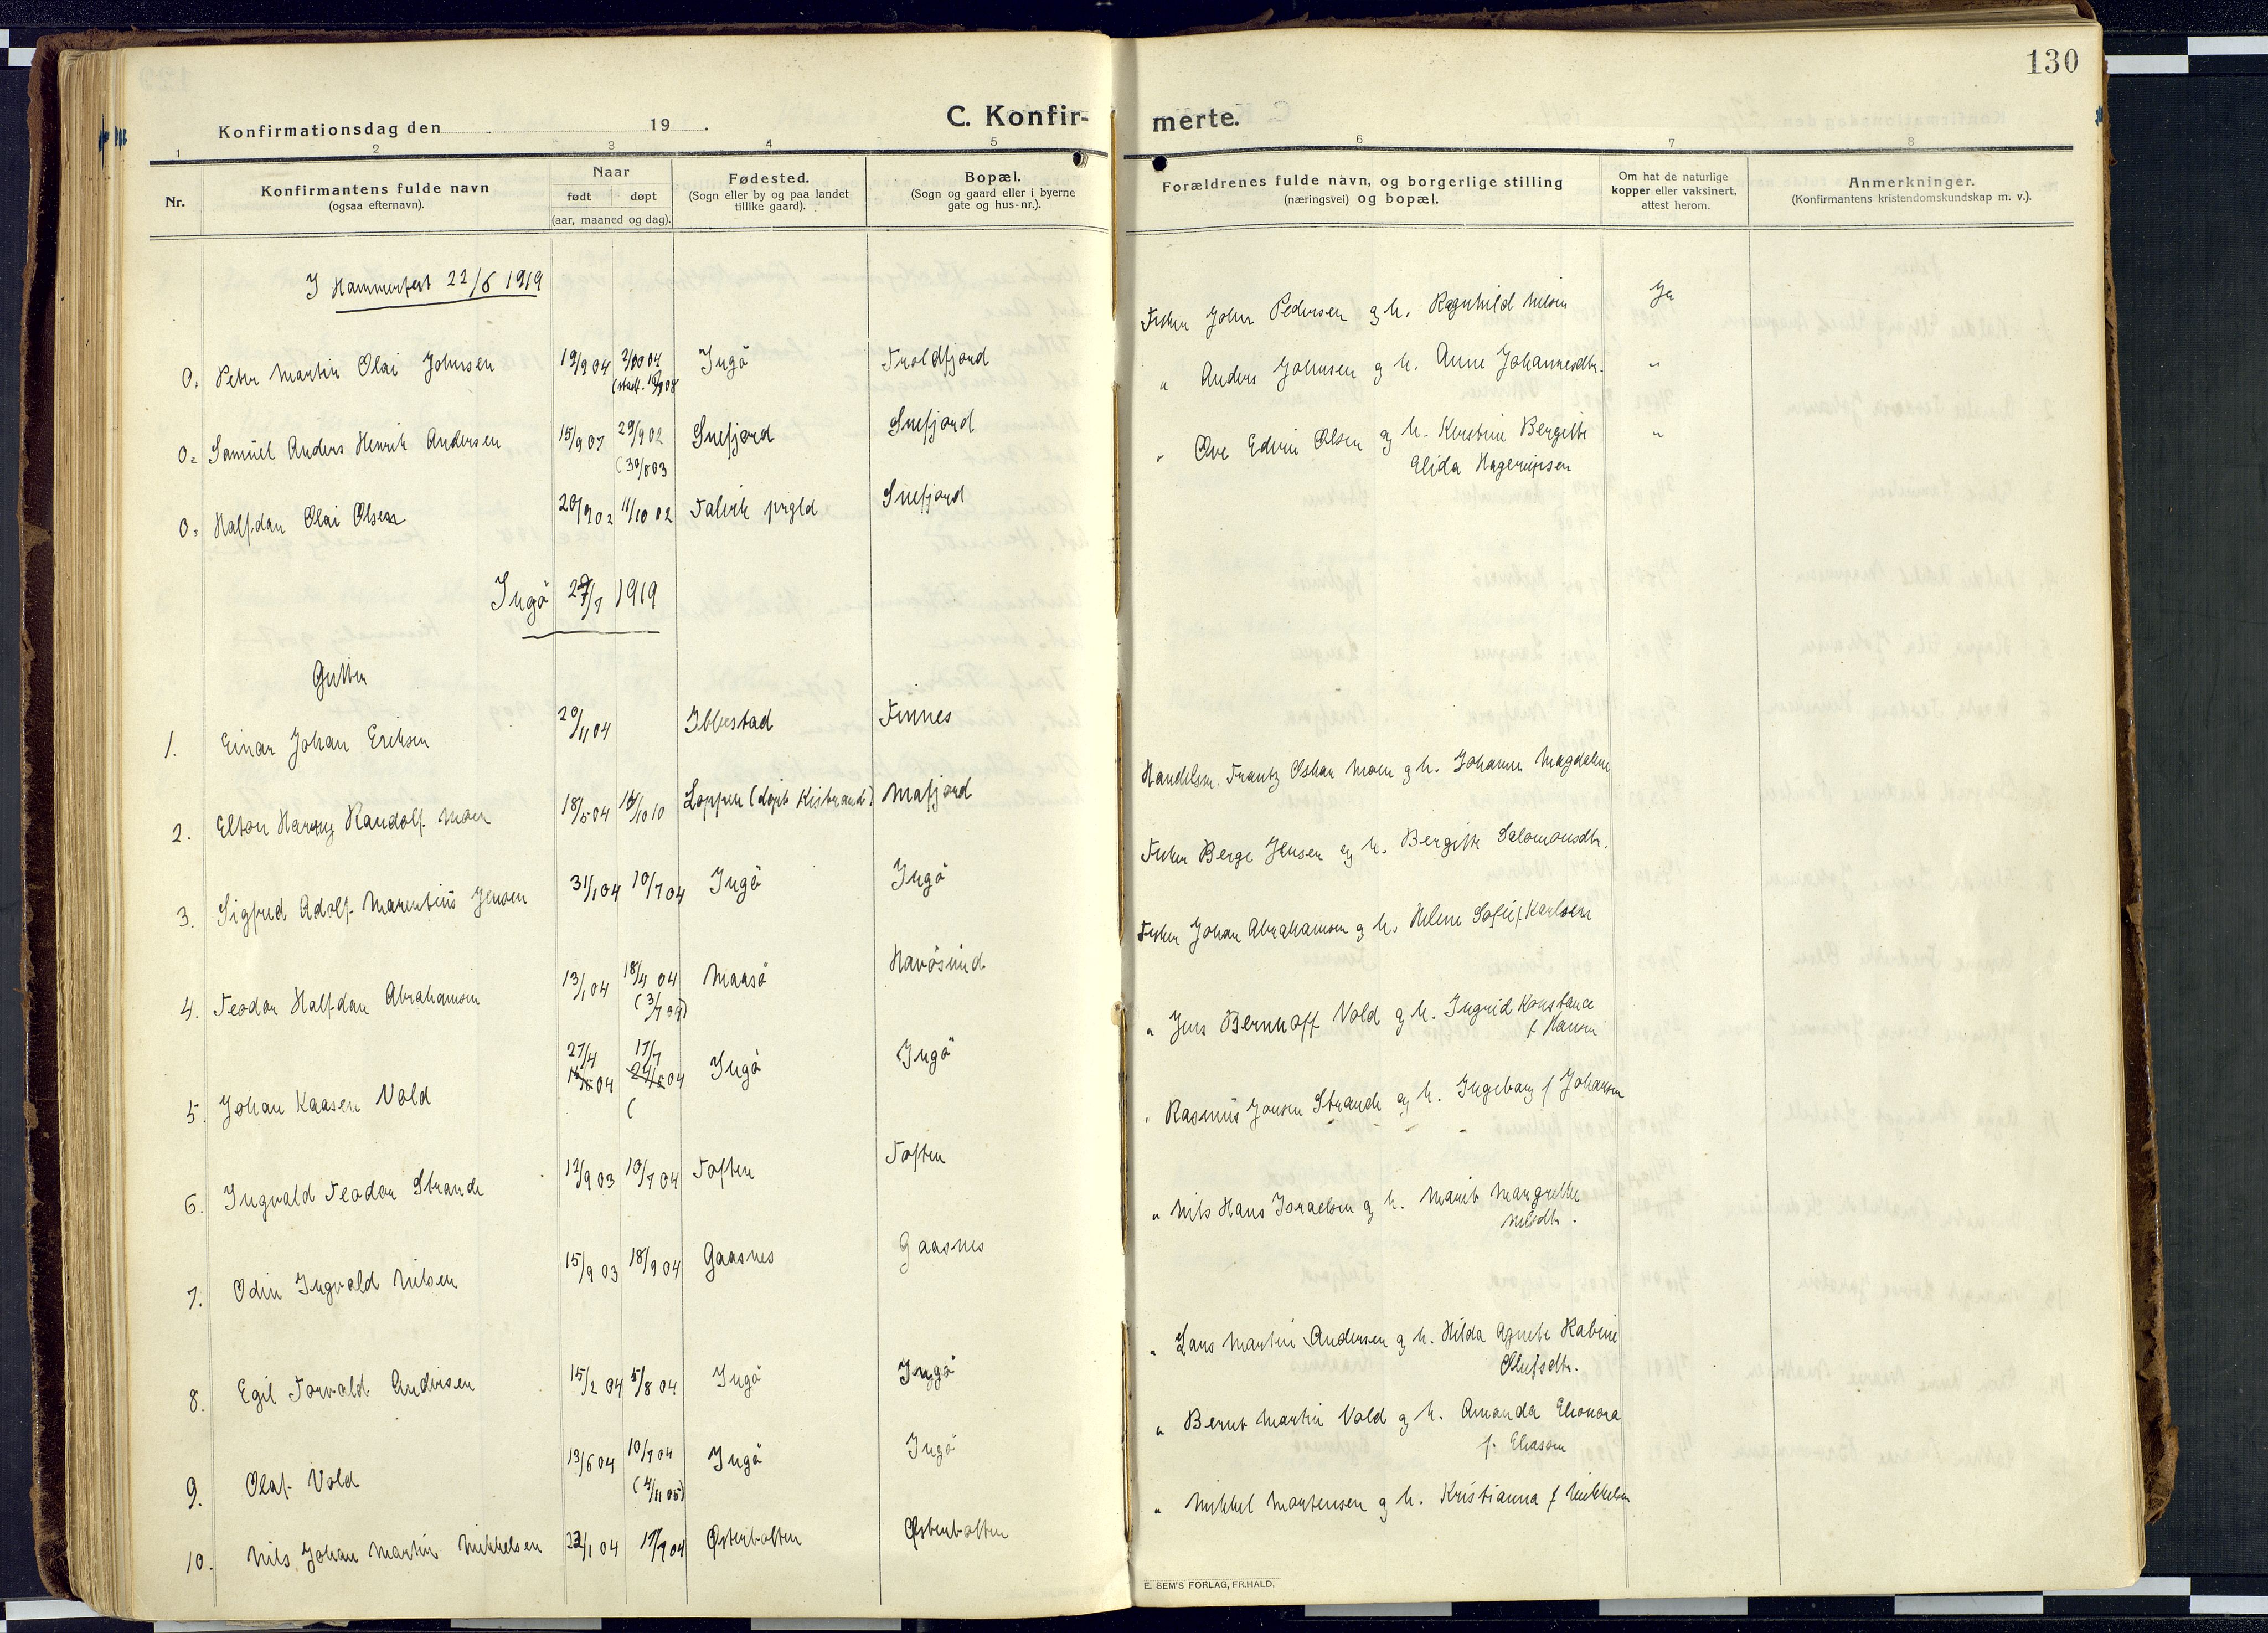 130
C. Konfir-
merte.
Konfirmationsdag den 19 .
1 2 3 4 5 6 7 8
Nr.
Konfirmantens fulde navn
(ogsaa efternavn).
Naar
født døpt
(aar, maaned og dag).
Fødested.
(Sogn eller by og paa landet
tillike gaard).
Bopæl.
(Sogn og gaard eller i byerne
gate og hus-nr.).
Forældrenes fulde navn, og borgerlige stilling
(næringsvei) og bopæl.
Om hat de naturlige
kopper eller vaksinert,
attest herom.
Anmerkninger.
(Konfirmantens kristendomskundskap m. v.).
I Hammerfest 22/6 1919
0. Peter Martin Olai Johnsen 19/9 04 Ingö Troldfjord Fisker John Pedersen og h. Ragnhild Nilsen Ja
0. Samuel Anders Henrik Andersen 15/9 07 29/9 02 Snefjord Snefjord " Anders Johnsen og h. Anne Johannesdtr. "
(30/8 03
0. Halfdan Olai Olsen 20/9 02 11/10 02 Talvik prgld Snefjord " Ove Edvin Olsen og h. Kirstine Bergitte "
Elida Hagerupsen
Ingö 27/7 1919
Gutter
1. Einar Johan Eriksen 20/11 04 Ibbestad Finnes
2. Elton Randolf Moen 18/5 04 Loppen (døpt Kistrand) Mafjord Handelsm. Frantz Oskar Moen og h. Johanne Magdalene
3. Sigfred Adolf Marentius Jensen 31/1 04 10/7 04 Ingö Ingö Fisker Berge Jensen og h. Bergitte Salomonsdtr.
4. Teodor Halfdan Abrahamsen 13/1 04 18/4 04 Maasö Havösund Fisker Johan Abrahamsen og h. Helene Sofie f. Karlsen
5. Johan Kaasen Vold 27/4 04 17/7 04 Ingö Ingö " Jens Bernhoff Vold og h. Ingrid Konstance
f Hansen
6. Ingvald Teodor Strande 12/9 03 13/7 04 Toften Toften " Rasmus Jonsen Strande og h. Ingeborg f Johansen
7. Odin Ingvald Nilsen 15/9 03 18/9 04 Gaasnes Gaasnes " Nils Hans Israelsen og h. Marit Margrethe
Nilsdtr.
8. Egil Torvald Andersen 15/2 04 5/8 04 Ingö Ingö " Lars Martin Andersen og h. Hilda Agnete Rabine
Olufsdtr.
9. Olaf Vold 13/6 04 10/7 04 Ingö Ingö " Bernt Martin Vold og h. Amanda Elionora
(4/11 05) f. Eliasen
10. Nils Johan Martin Mikkelsen 23/1 04 17/7 04 Østerbotten Østerbotten " Mikkel Mortensen og h. Kristianna f Mikkelsen
E. SEM'S FORLAG, FR.HALD.